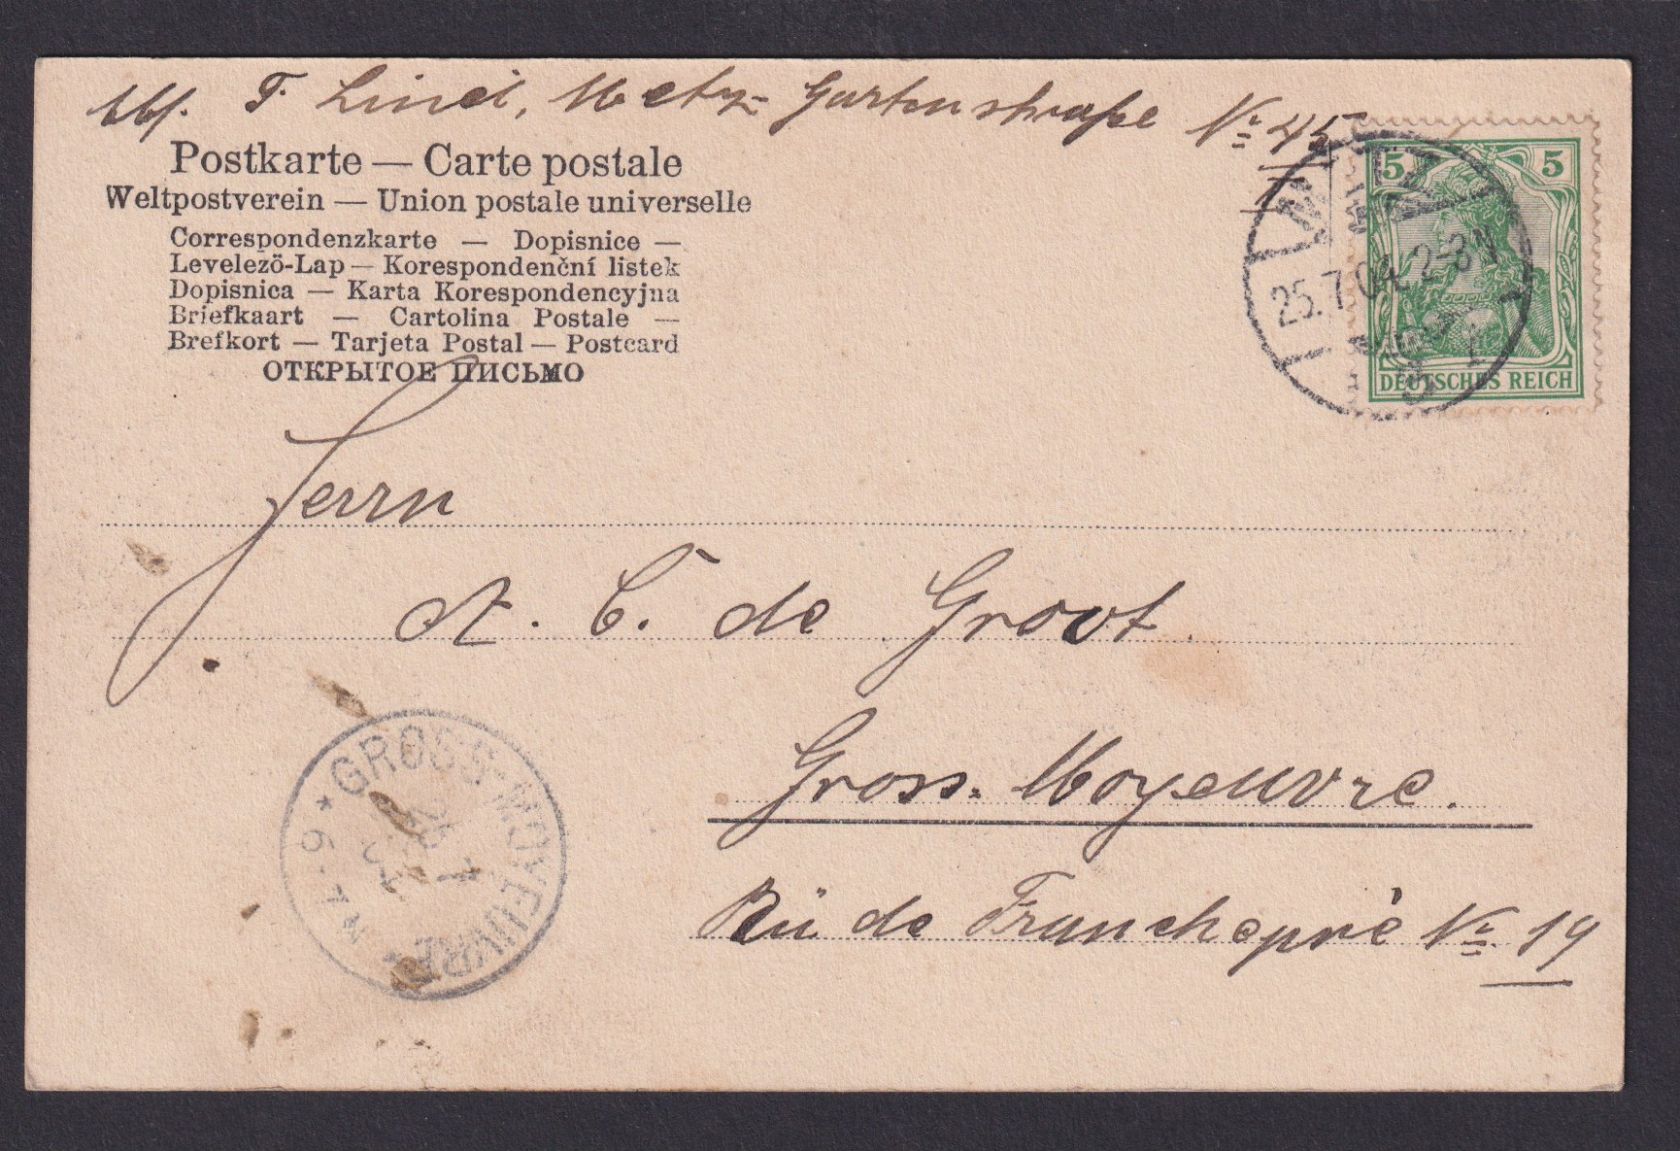 Abs. F. Linel, Metz Gartenstraße No 45
Postkarte — Carte postale
Weltpostverein — Union postale universelle
Correspondenzkarte — Dopisnice —
Levelezö-Lap — Korespondenční listek
Dopisnica — Karta Korespondencyjna
Briefkaart — Cartolina Postale —
Brefkort — Tarjeta Postal — Postcard
ОТКРЫТОЕ ПИСЬМО
5 5
DEUTSCHES REICH
METZ
25.7.04. 2-3N
Herrn
A. C. de Groot
Gross-Moyeuvre.
Rü de Franchepré No 19
* GROSS-MOYEUVRE *